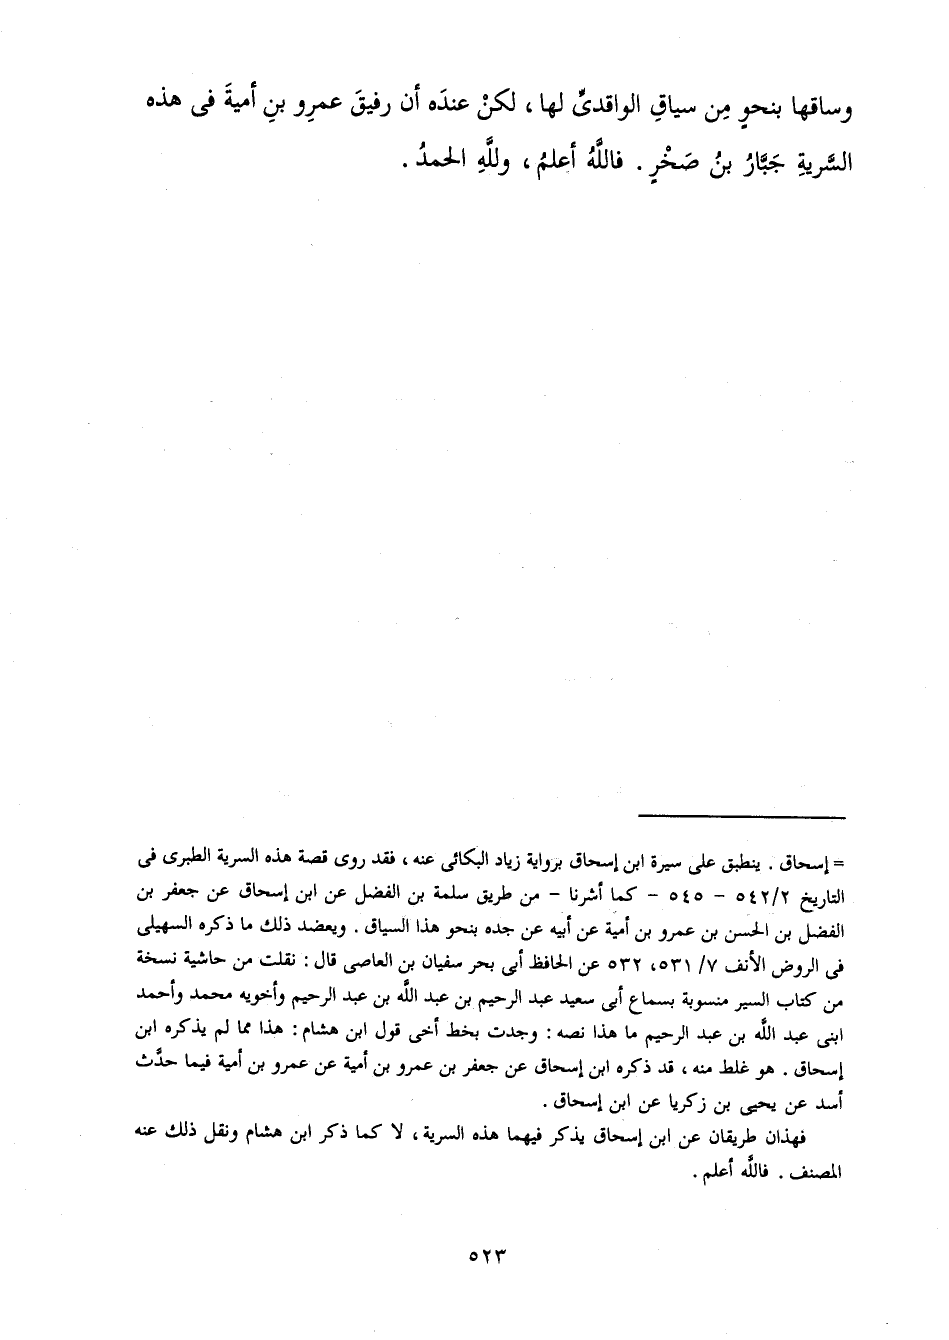 وساقها بنحوٍ مِن سياقِ الواقدىِّ لها ، لكنْ عندَه أن رفيقَ عمرِو بنِ أميةَ فى هذه
السَّريةِ جَبَّارُ بنُ صَخْرٍ . فاللَّهُ أعلمُ ، وللَّهِ الحمدُ .
= إسحاق . ينطبق على سيرة ابن إسحاق برواية زياد البكائى عنه ، فقد روى قصة هذه السرية الطبرى فى
التاريخ ٥٤٢/٢ - ٥٤٥ - كما أشرنا - من طريق سلمة بن الفضل عن ابن إسحاق عن جعفر بن
الفضل بن الحسن بن عمرو بن أمية عن أبيه عن جده بنحو هذا السياق . ويعضد ذلك ما ذكره السهيلى
فى الروض الأنف ٧/ ٥٣١، ٥٣٢ عن الحافظ أبى بحر سفيان بن العاصى قال : نقلت من حاشية نسخة
من كتاب السير منسوبة بسماع أبى سعيد عبد الرحيم بن عبد اللَّه بن عبد الرحيم وأخويه محمد وأحمد
ابنى عبد اللَّه بن عبد الرحيم ما هذا نصه : وجدت بخط أخى قول ابن هشام : هذا مما لم يذكره ابن
إسحاق . هو غلط منه ، قد ذكره ابن إسحاق عن جعفر بن عمرو بن أمية عن عمرو بن أمية فيما حدَّث
أسد عن يحيى بن زكريا عن ابن إسحاق .
فهذان طريقان عن ابن إسحاق يذكر فيهما هذه السرية ، لا كما ذكر ابن هشام ونقل ذلك عنه
المصنف . فاللَّه أعلم .
٥٢٣